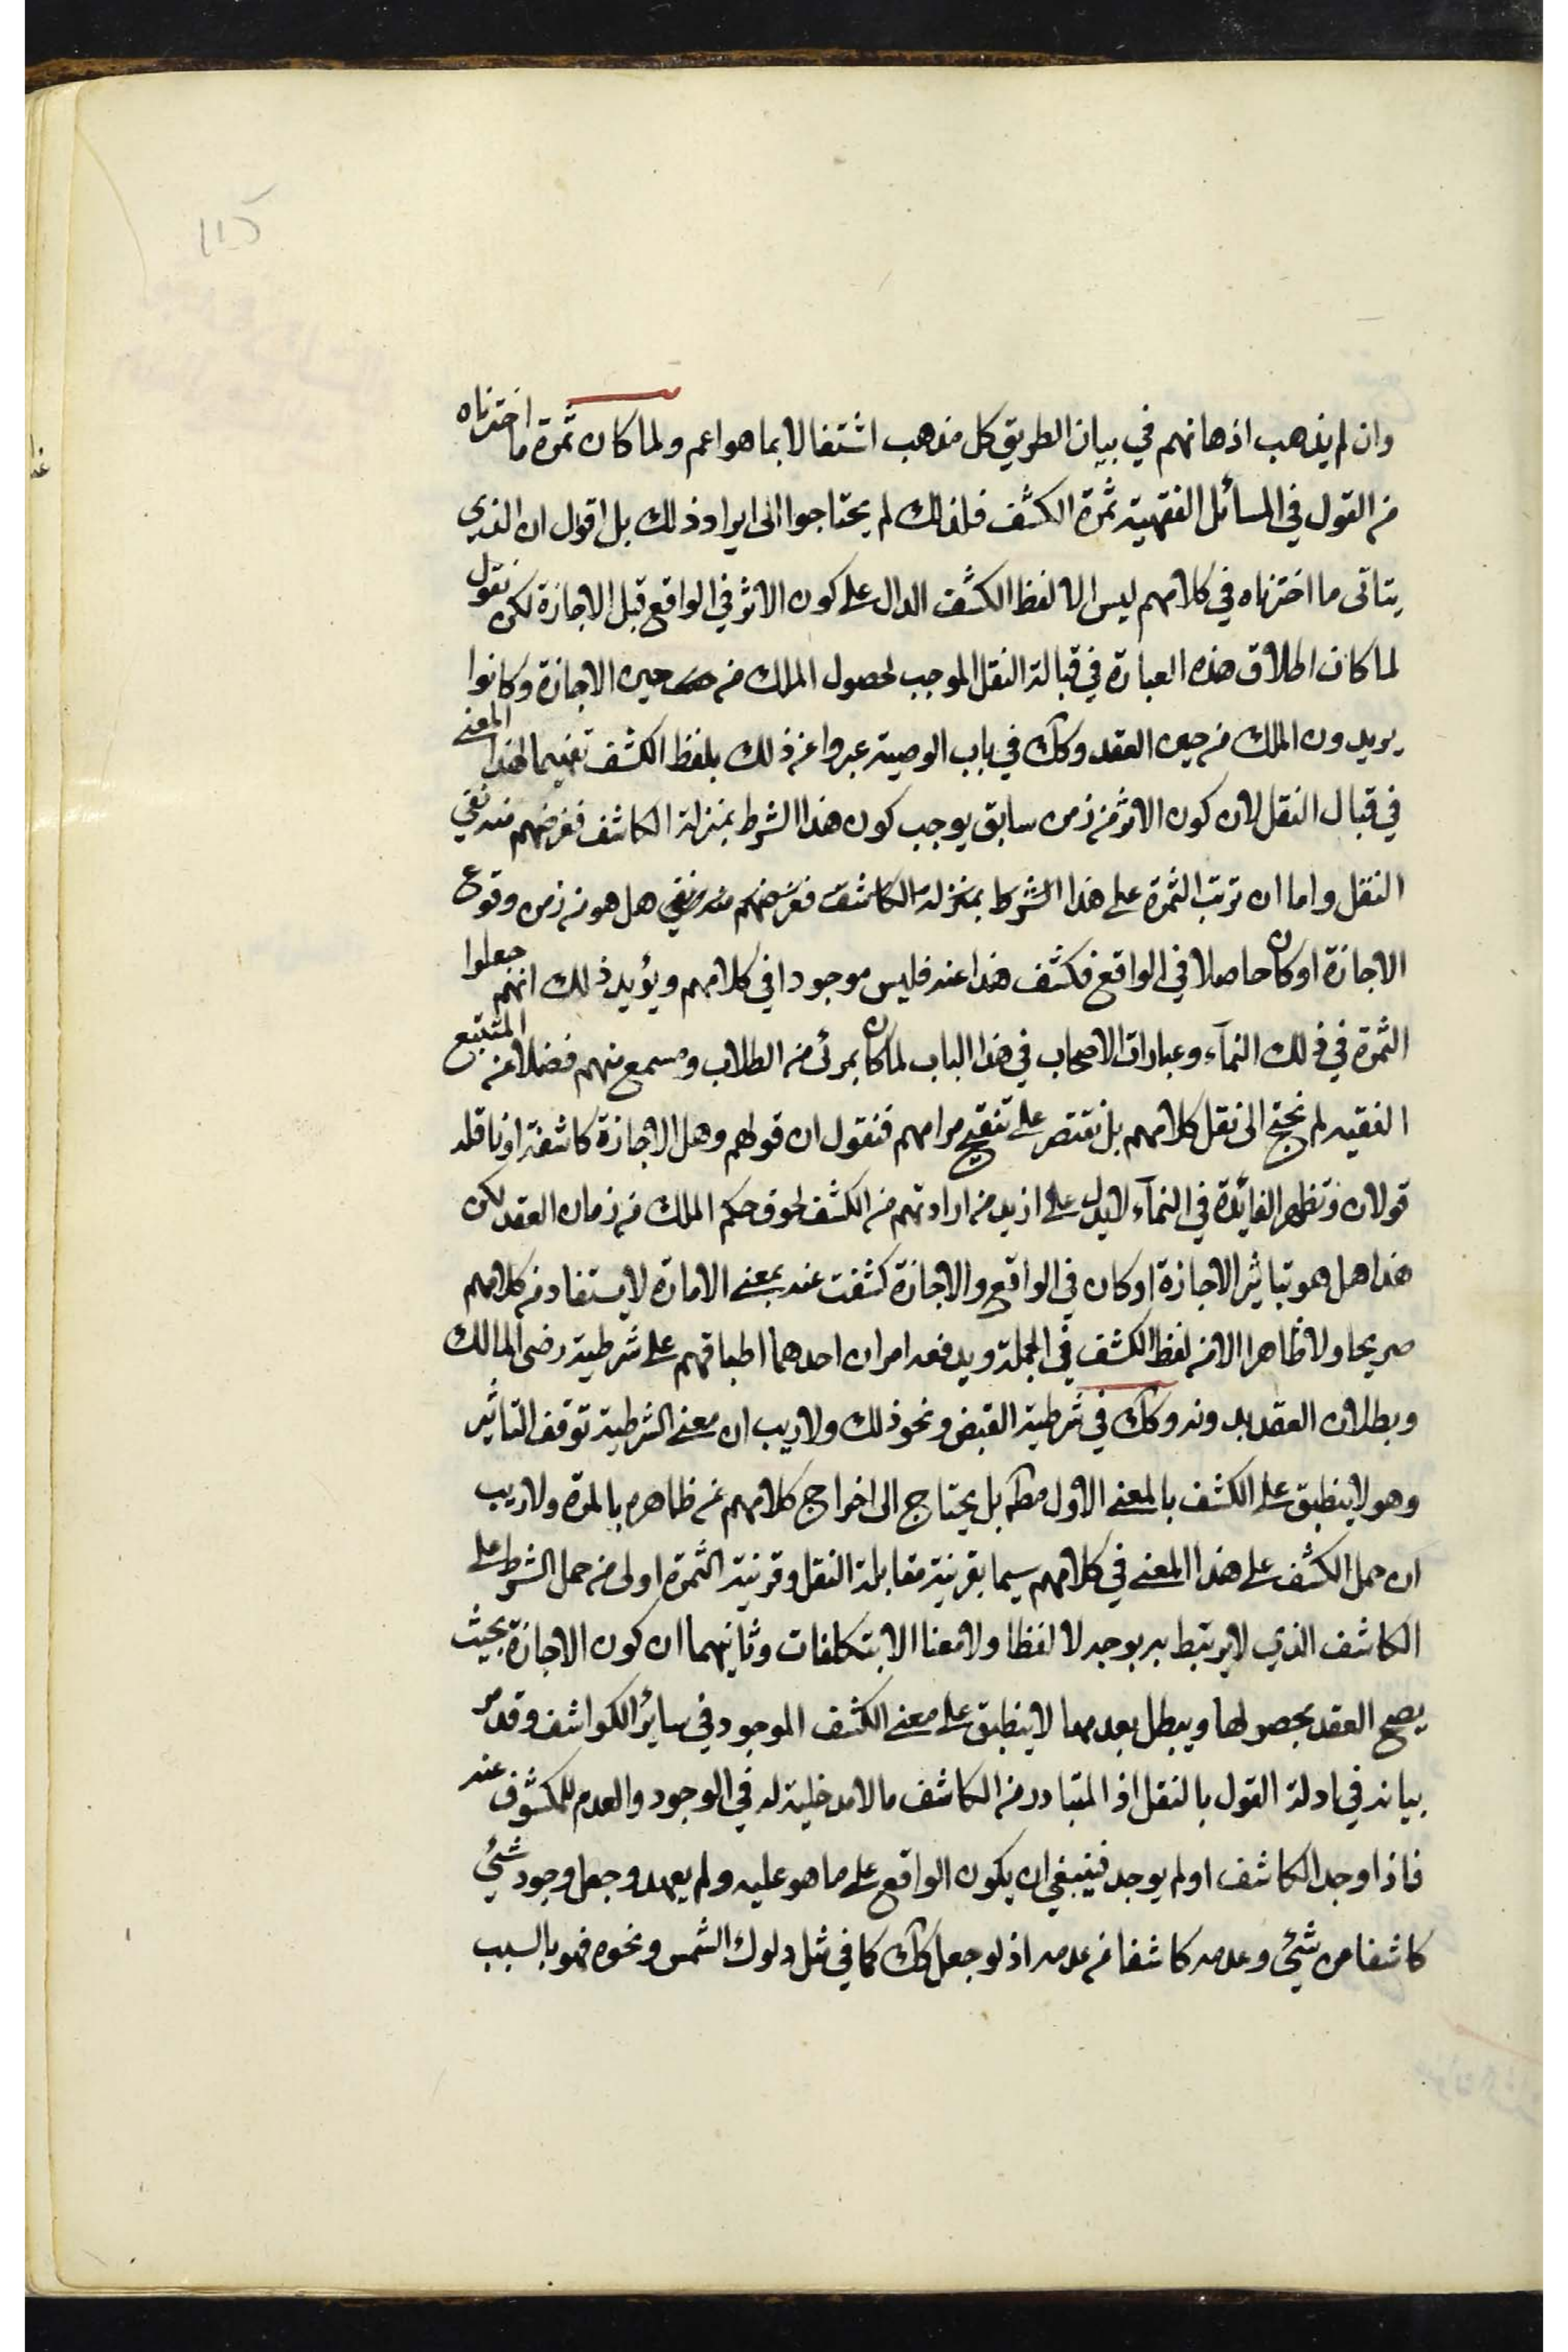 وان لم يذهب اذهانهم في بيان الطريق كل مذهب اشتغالا بما هو اعم ولما كان ثمرة ما اخترناه
من القول في المسائل الفقهية ثمرة الكشف فلذلك لم يحتاجوا الى ايراد ذلك بل اقول ان الذي
يتاتى ما اخترناه في كلامهم ليس الا لفظ الكشف الدال على كون الاثر في الواقع قبل الاجازة لكن نقول
لما كان اطلاق هذه العبارة في قبالة النقل الموجب لحصول الملك من حين الاجازة وكانوا
يريدون الملك من حين العقد وكك في باب الوصية عبروا عن ذلك بلفظ الكشف تفهيما لهذا المعنى
في قبال النقل لان كون الاثر من زمن سابق يوجب كون هذا الشرط بمنزلة الكاشف فغرضهم منه نفي
النقل واما ان ترتب الثمرة على هذا الشرط بمنزلة الكاشف فغرضهم منه نفي هل هو من زمن وقوع
الاجازة او كان حاصلا في الواقع فكشف هذا عنه فليس موجودا في كلامهم ويؤيد ذلك انهم جعلوا
الثمرة في ذلك النمآء وعبارات الاصحاب في هذا الباب لما كان بمرئ من الطلاب ومسمع منهم فضلا عن المتتبع
الفقيه لم نحتج الى نقل كلامهم بل نقتصر على تنقيح مرامهم فنقول ان قولهم وهل الاجازة كاشفة او ناقلة
قولان وتظهر الفايدة في النمآء لا يدل على ازيد من ارادتهم من الكشف لحوق حكم الملك من زمان العقد لكن
هذا هل هو بتاثير الاجازة او كان في الواقع والاجازة كشفت عنه بمعنى الامارة لا يستفاد من كلامهم
صريحا ولا ظاهرا الا من لفظ الكشف في الجملة ويدفعه امران احدهما اطباقهم على شرطية رضى المالك
وبطلان العقد بدونه وكك في شرطية القبض ونحو ذلك ولا ريب ان معنى الشرطية توقف التاثير
وهو لا ينطبق على الكشف بالمعنى الاول مطه بل يحتاج الى اخراج كلامهم عن ظاهره بالمرة ولا ريب
ان حمل الكشف على هذا المعنى في كلامهم سيما بقرينة مقابلة النقل وقرينة الثمرة اولى من حمل الشرط على
الكاشف الذي لا يرتبط به بوجه لا لفظا ولا معنا الا بتكلفات وثانيهما ان كون الاجازة بحيث
يصح العقد بحصولها ويبطل بعدمها لا ينطبق على معنى الكشف الموجود في ساير الكواشف وقد مر
بيانه في ادلة القول بالنقل اذ المتبادر من الكاشف ما لا مدخلية له في الوجود والعدم للمكشوف عنه
فاذا وجد الكاشف او لم يوجد فينبغي ان يكون الواقع على ما هو عليه ولم يعهد وجعل وجود شئ
كاشفا من شئ وعدمه كاشفا من عدمه اذ لو جعل كك كما في مثل دلوك الشمس ونحوه فهو بالسبب